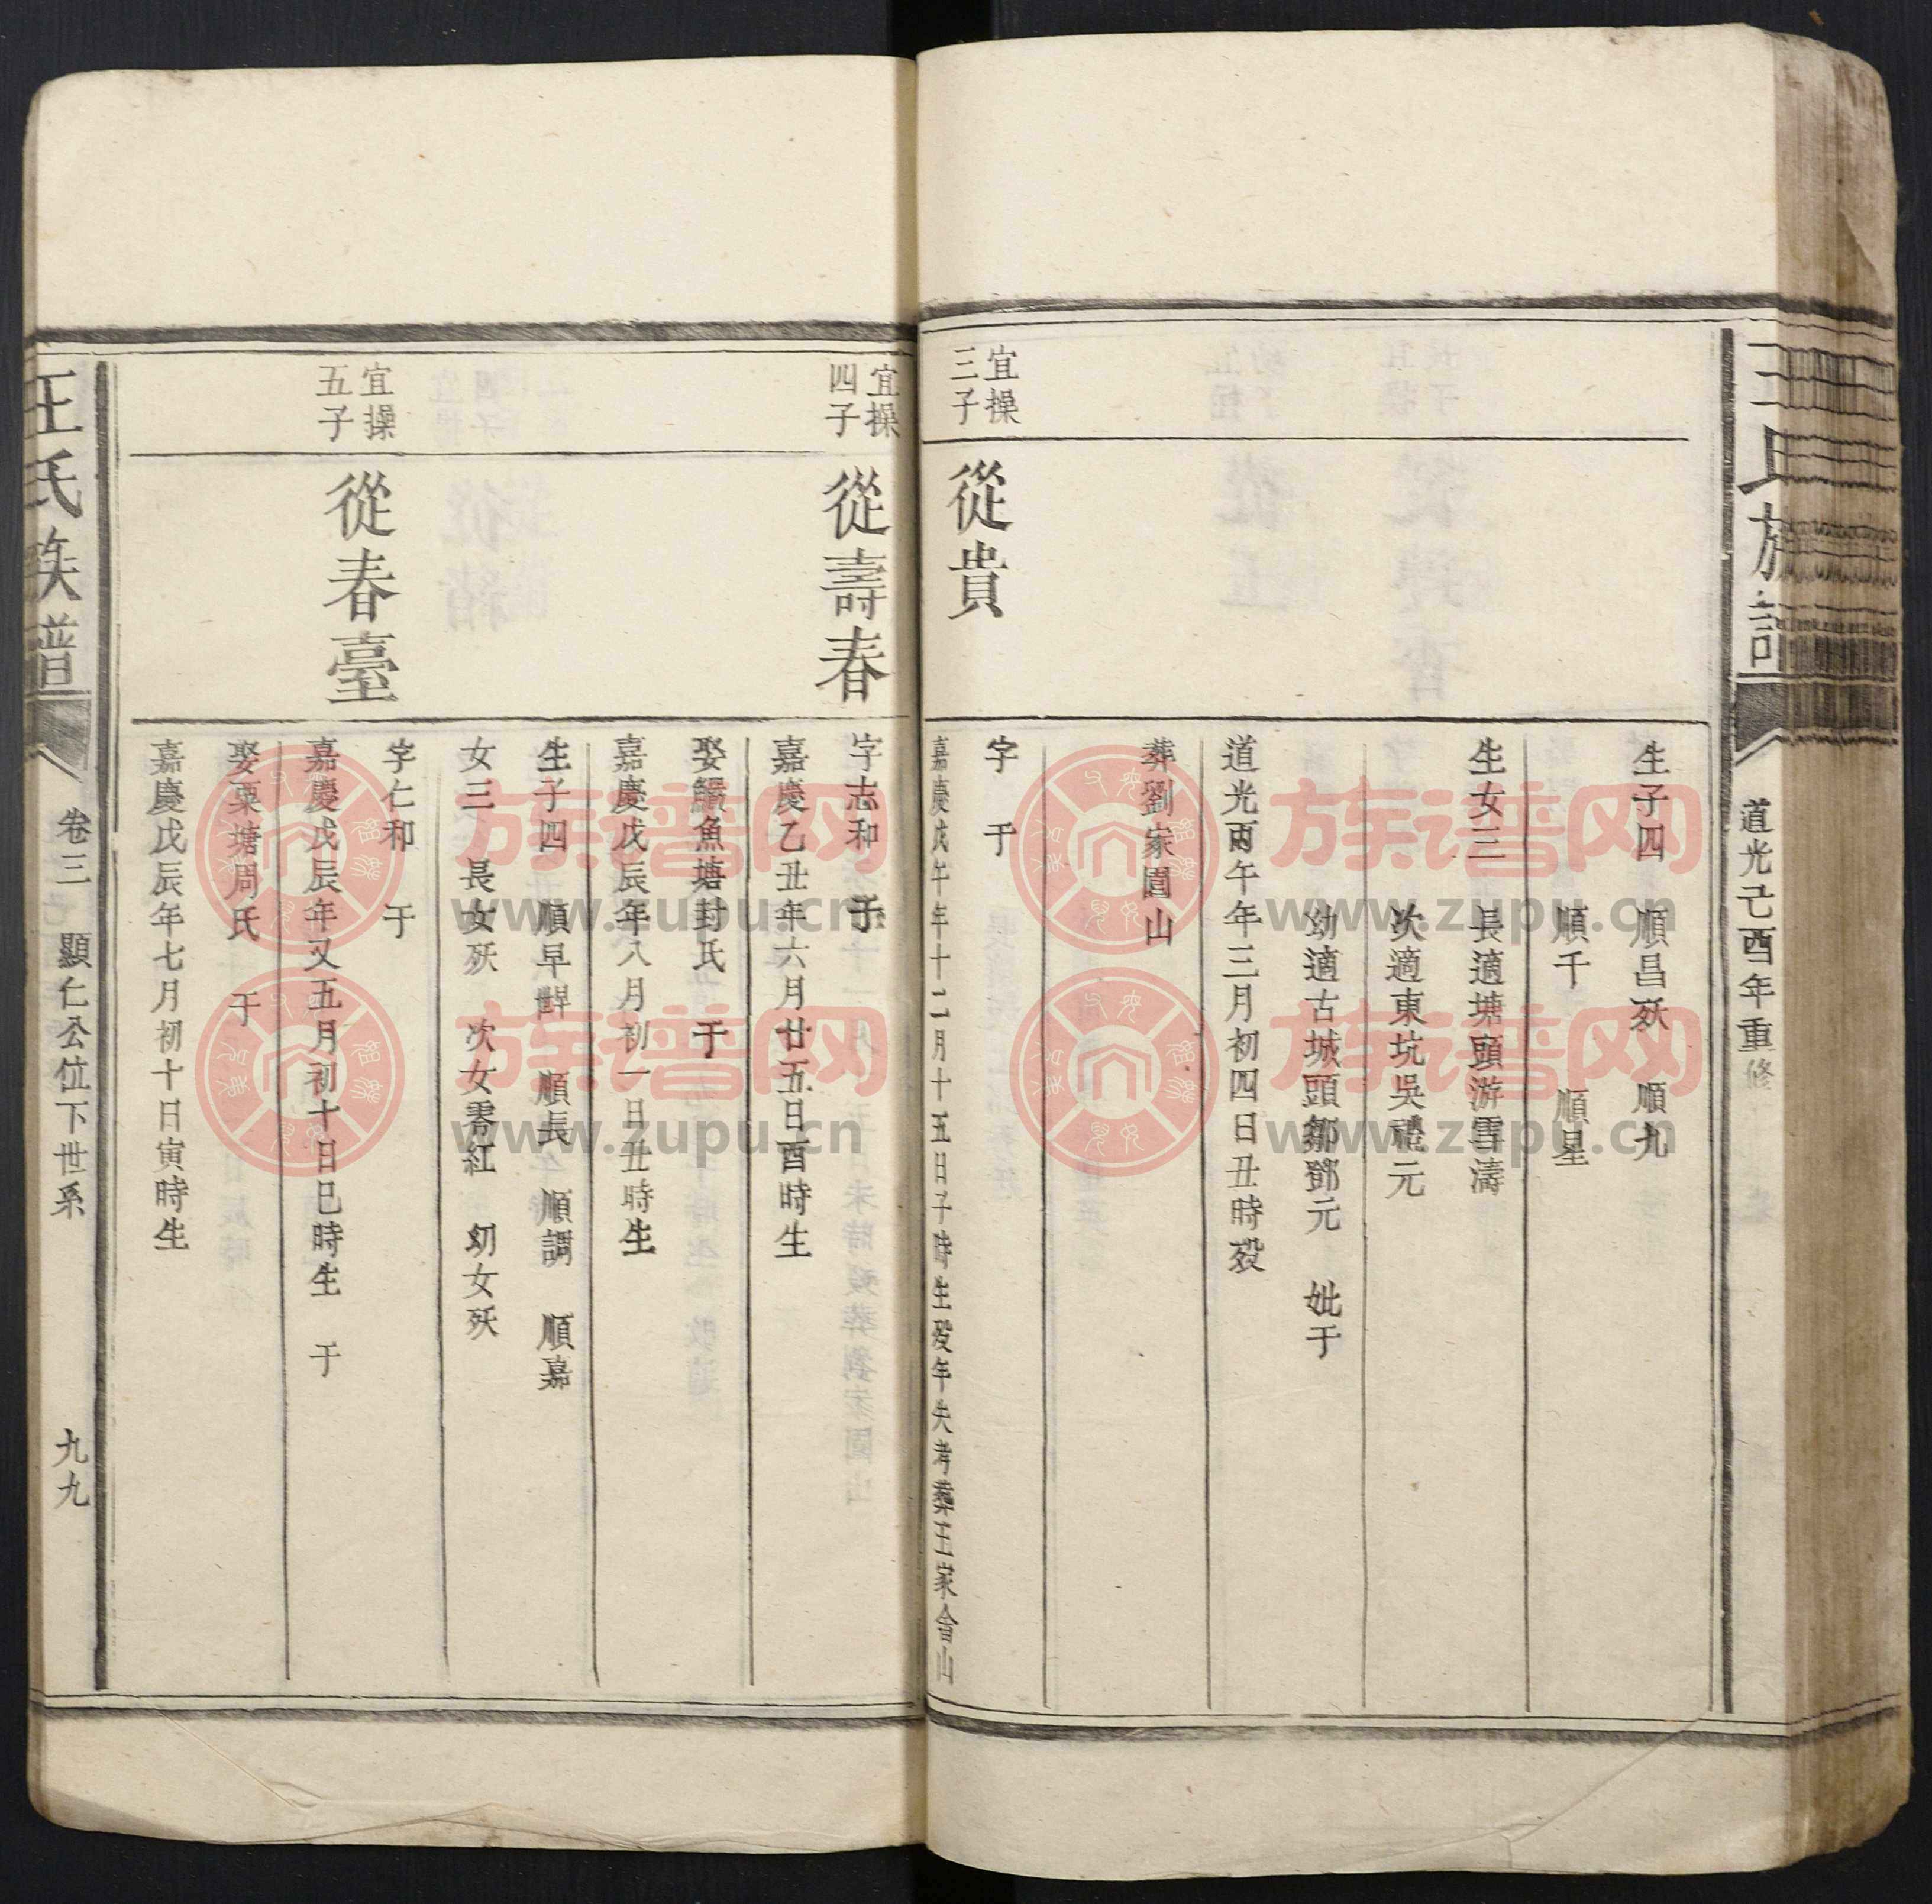 道光己酉年重修
生子四 順昌殀 順九
順千 順星
生女三 長適塘頭游雪濤
次適東坑吳禮元
幼適古城頭鄒鄧元 妣于
道光丙午年三月初四日丑時歿
葬劉家園山
宜操
三子
從貴
字 于
嘉慶戊午年十二月十五日子時生歿年失考葬王家會山
宜操
四子
從壽春
字志和 于
嘉慶乙丑年六月廿五日酉時生
魚塘封氏 于
嘉慶戊辰年八月初一日丑時生
生子四 順早 順長 順調 順嘉
女三 長女殀 次女零紅 幼女殀
宜操
五子
從春臺
字仁和 于
嘉慶戊辰年又五月初十日巳時生 于
娶粟塘周氏 于
嘉慶戊辰年七月初十日寅時生
王氏族譜
卷三 顯仁公位下世系
九九
族谱网
www.zupu.cn
族谱网
www.zupu.cn
族谱网
www.zupu.cn
族谱网
www.zupu.cn